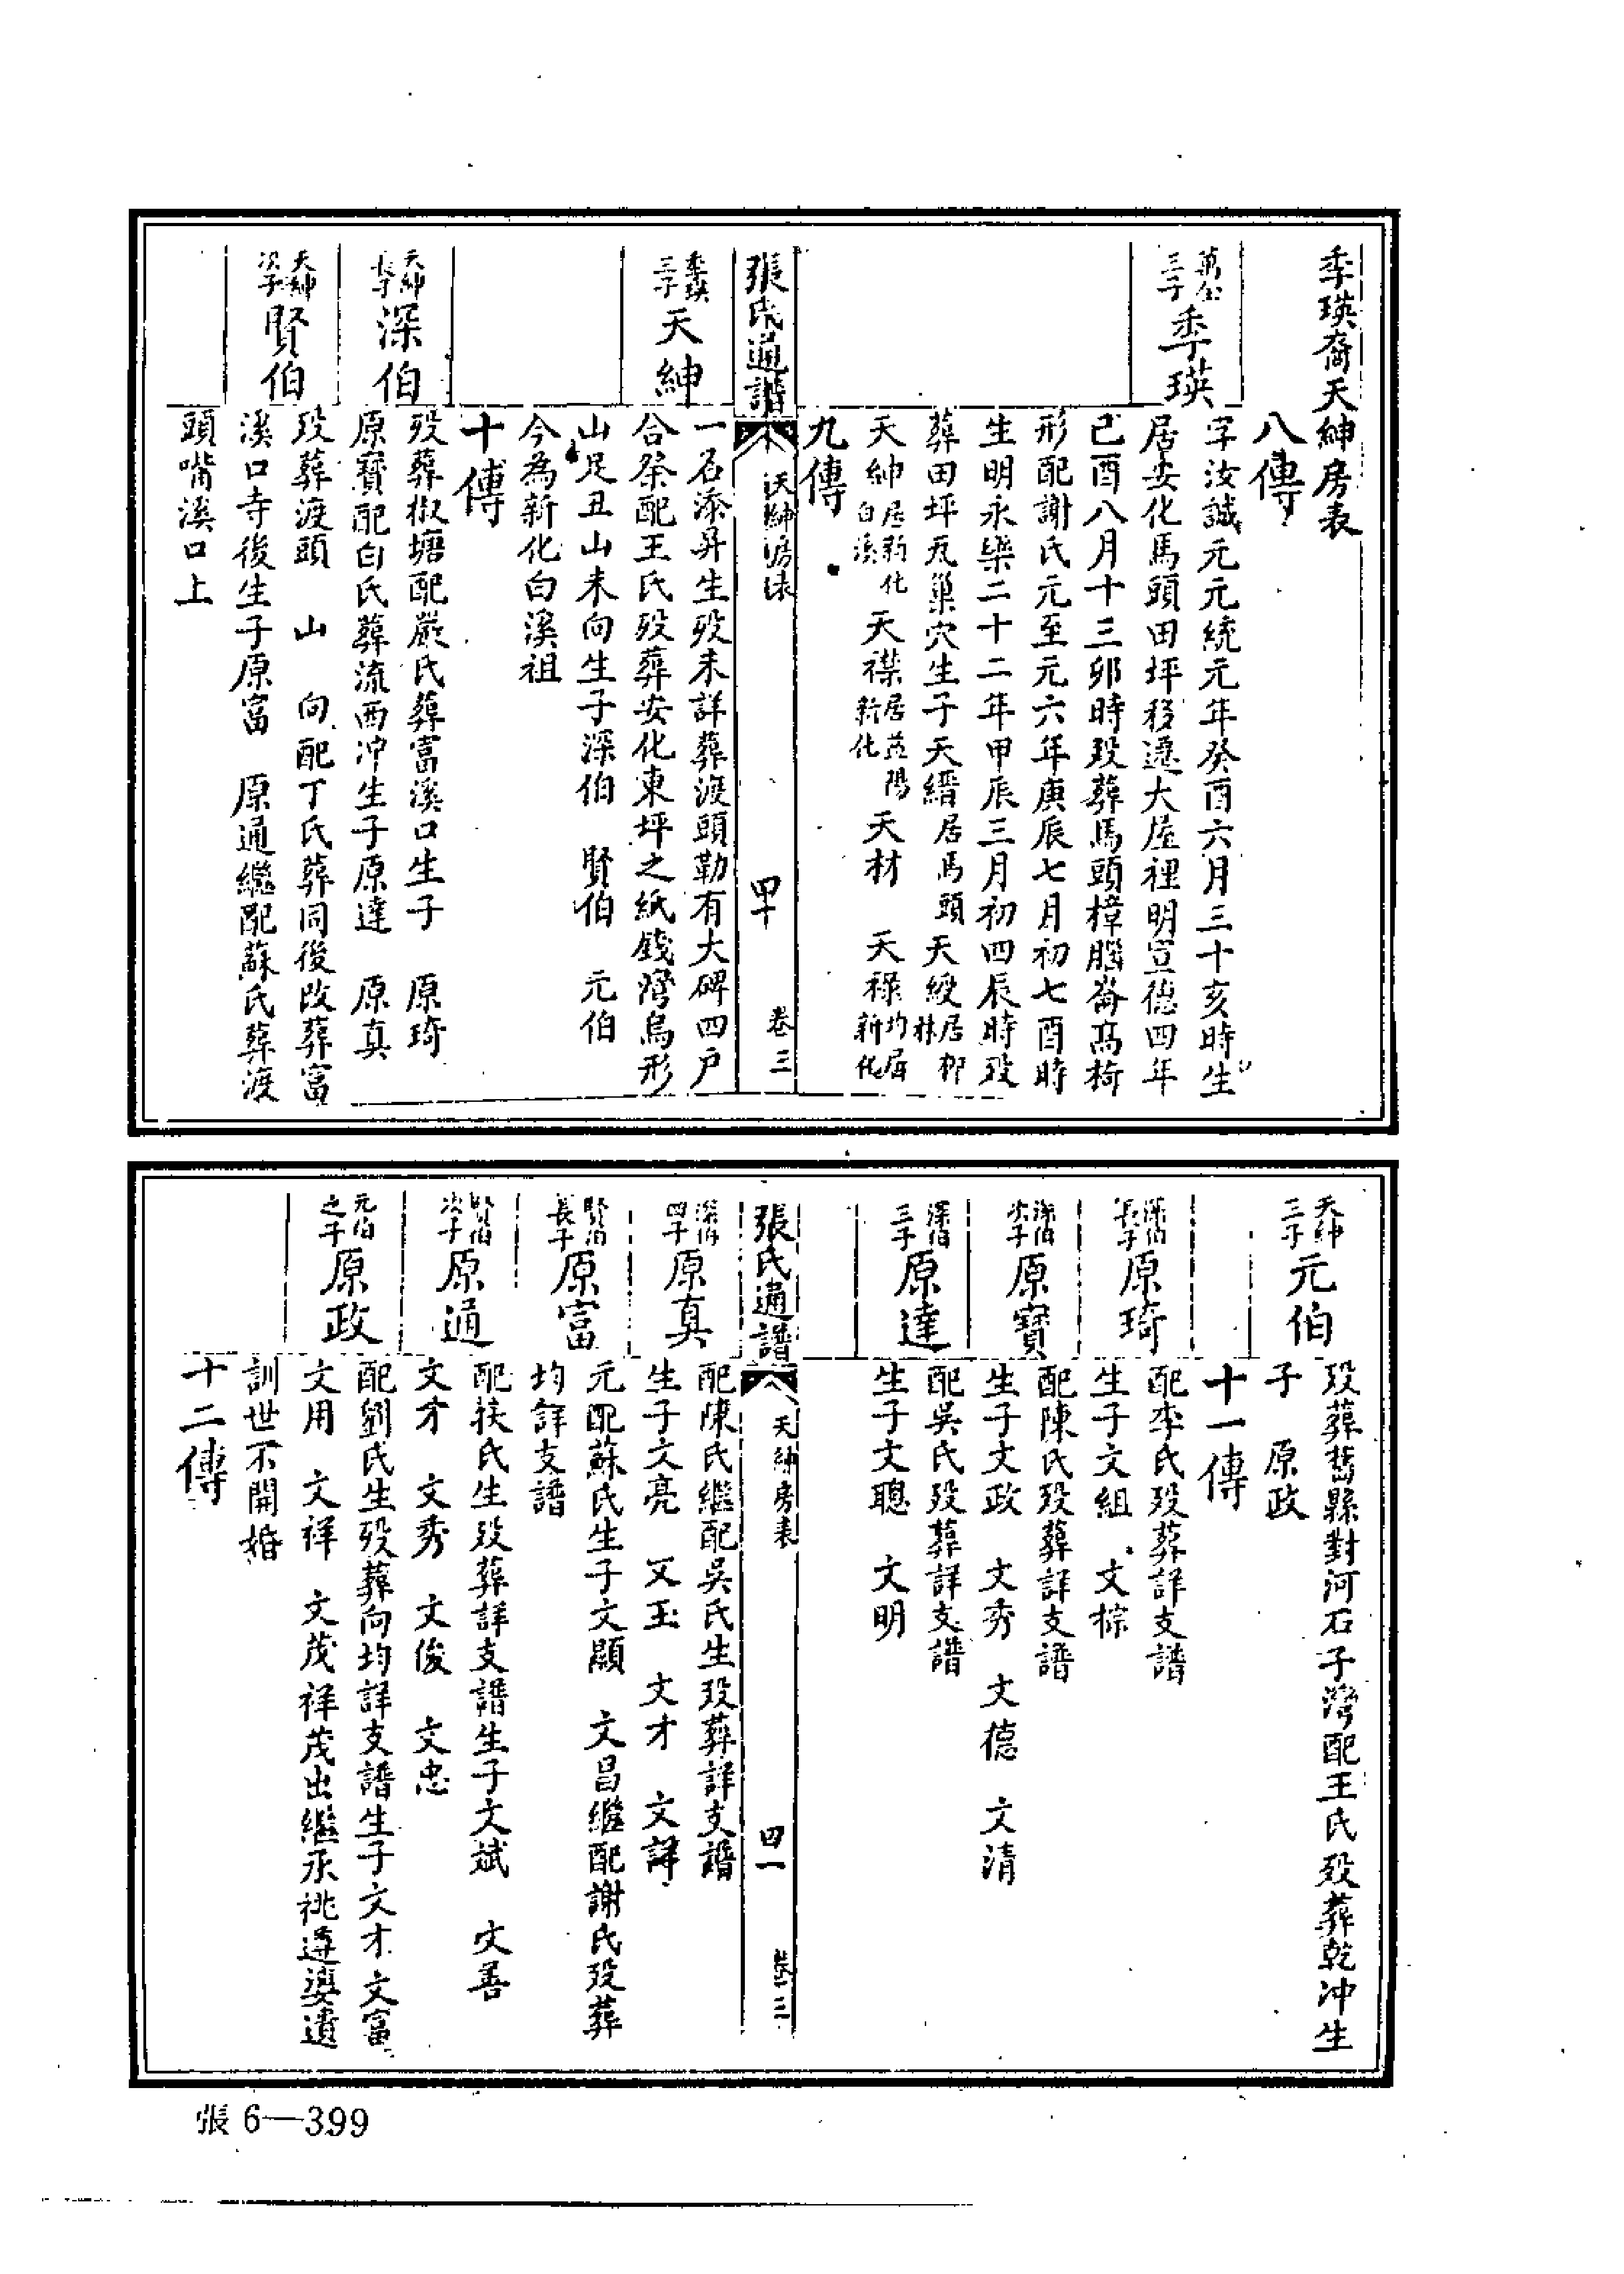 季瑛裔天紳房表
八傳
萬公三子 季瑛
字汝誠元元統元年癸酉六月三十亥時生
居安化馬頭田坪移遷大屋裡明宣德四年
己酉八月十三卯時歿葬馬頭樟腦崙高椅
形配謝氏元至元六年庚辰七月初七酉時
生明永樂二十二年甲辰三月初四辰時歿
葬田坪瓦巢穴生子天縉居馬頭 天綬居
天紳居新化白溪 天襟居益陽新化 天材 天祿均居新化
九傳
張氏通譜 天紳房表 四十 卷三
季瑛三子 天紳
一名添昇生歿未詳葬渡頭勒有大碑四戶
合祭配王氏歿葬安化東坪之紙錢灣烏形
山足丑山未向生子深伯 賢伯 元伯
今為新化白溪祖
十傳
天紳長子 深伯
歿葬椒塘配嚴氏葬富溪口生子 原琦
原寶配白氏葬流西冲生子原達 原真
天紳次子 賢伯
歿葬渡頭 山 向配丁氏葬同後改葬富
溪口寺後生子原富 原通繼配蘇氏葬渡
頭嘴溪口上
天紳三子 元伯
歿葬舊縣對河石子灣配王氏歿葬乾冲生
子 原政
十一傳
深伯長子 原琦
配李氏歿葬詳支譜
生子文組 文棕
深伯次子 原寶
配陳氏歿葬詳支譜
生子文政 文秀 文德 文清
深伯三子 原達
配吳氏歿葬詳支譜
生子文聰 文明
張氏通譜 天紳房表 四一 卷三
深伯四子 原真
配陳氏繼配吳氏生歿葬詳支譜
生子文亮 文玉 文才 文詳
賢伯長子 原富
元配蘇氏生子文顯 文昌繼配謝氏歿葬
均詳支譜
賢伯次子 原通
配扶氏生歿葬詳支譜生子文斌 文善
文才 文秀 文俊 文忠
元伯之子 原政
配劉氏生歿葬向均詳支譜生子文才文富
文用 文祥 文茂祥茂出繼承祧遵婆遺
訓世不開婚
十二傳
張6—399